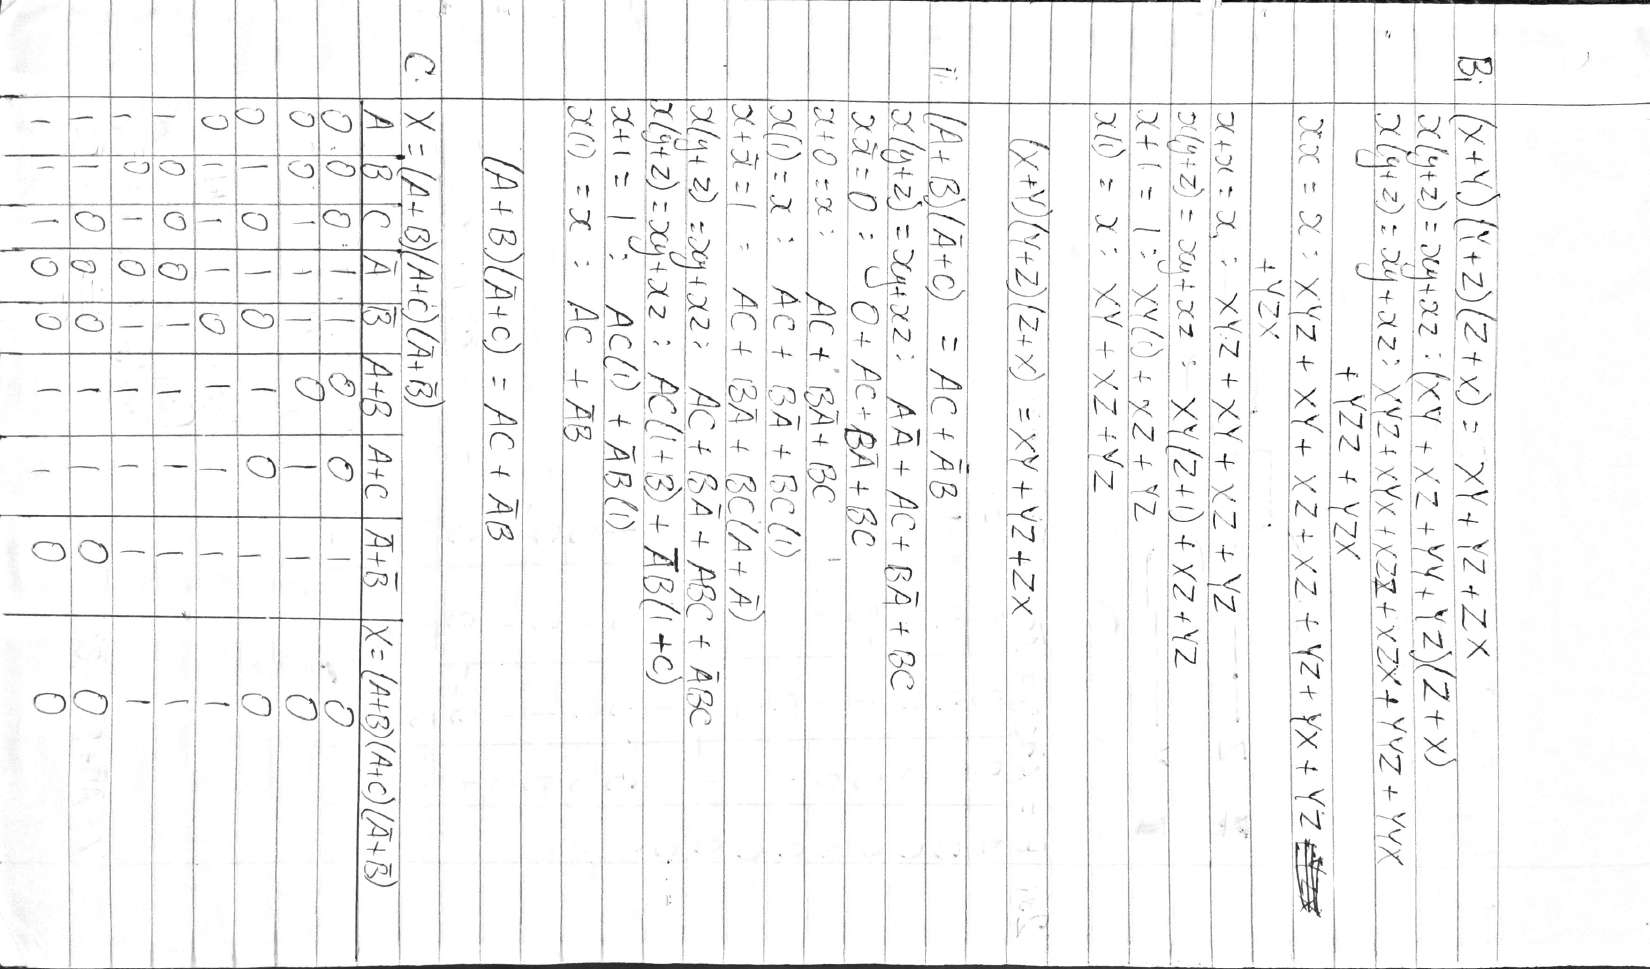 Bi (X+Y)(Y+Z)(Z+X) = XY+YZ+ZX
x(y+z) = xy+xz : (XY + XZ + YY + YZ)(Z+X)
x(y+z) = xy+xz : XYZ+XYX+XZZ+XZX+YYZ+YYX
+ YZZ + YZX
xx = x : XYZ + XY + XZ + XZ + YZ + YX + YZ
+ YZX
x+x = x : XYZ + XY + XZ + YZ
x(y+z) = xy+xz : XY(Z+1) + XZ+YZ
x+1 = 1 : XY(1) + XZ + YZ
x(1) = x : XY + XZ+YZ
(X+Y)(Y+Z)(Z+X) = XY+YZ+ZX
ii. (A+B)(Ā+C) = AC + ĀB
x(y+z) = xy+xz : AĀ + AC + BĀ + BC
xx̄ = 0 : 0 + AC + BĀ + BC
x+0 = x : AC + BĀ + BC
x(1) = x : AC + BĀ + BC(1)
x+x̄ = 1 : AC + BĀ + BC(A+Ā)
x(y+z) = xy+xz : AC + BĀ + ABC + ĀBC
x(y+z) = xy+xz : AC(1+B) + ĀB(1+C)
x+1 = 1 : AC(1) + ĀB(1)
x(1) = x : AC + ĀB
(A+B)(Ā+C) = AC + ĀB
C. X = (A+B)(A+C)(Ā+B̄)
A B C Ā B̄ A+B A+C Ā+B̄ X=(A+B)(A+C)(Ā+B̄)
0 0 0 1 1 0 0 1 0
0 0 1 1 1 0 1 1 0
0 1 0 1 0 1 0 1 0
0 1 1 1 0 1 1 1 1
1 0 0 0 1 1 1 1 1
1 0 1 0 1 1 1 1 1
1 1 0 0 0 1 1 0 0
1 1 1 0 0 1 1 0 0